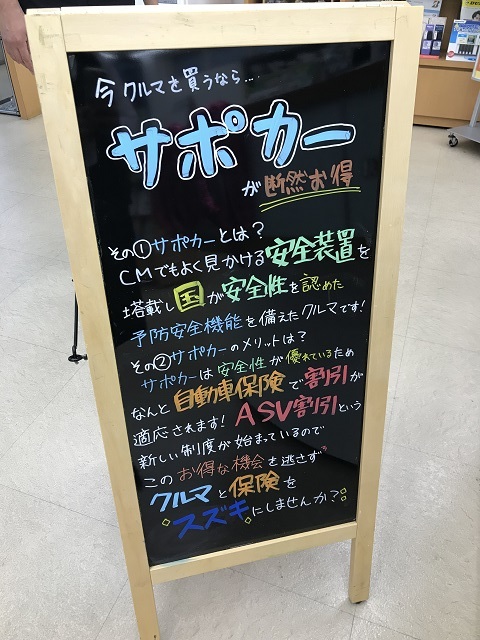 今クルマを買うなら…
サポカー
が断然お得
その①サポカーとは?
CMでもよく見かける安全装置を
塔載し国が安全性を認めた
予防安全機能を備えたクルマです!
その②サポカーのメリットは?
サポカーは安全性が優れているため
なんと自動車保険で割引が
適応されます!ASV割引という
新しい制度が始まっているので
このお得な機会を逃さず
クルマと保険を
スズキにしませんか?